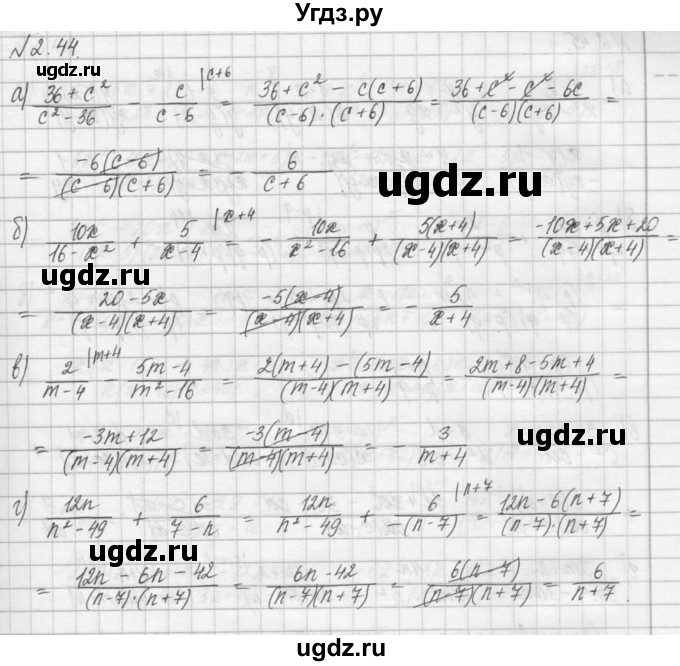 Угдз.ру
№2.44.
а) (36+c²)/(c²-36) - c/(c-6) |c+6 = (36+c²-c(c+6))/((c-6)·(c+6)) = (36+c²-c²-6c)/((c-6)(c+6)) =
= -6(c-6)/((c-6)(c+6)) = - 6/(c+6).
uqdz.ru
б) 10x/(16-x²) + 5/(x-4) |x+4 = - 10x/(x²-16) + 5(x+4)/((x-4)(x+4)) = (-10x+5x+20)/((x-4)(x+4)) =
uqdz.ru
= (20-5x)/((x-4)(x+4)) = -5(x-4)/((x-4)(x+4)) = - 5/(x+4)
в) 2/(m-4) |m+4 - (5m-4)/(m²-16) = (2(m+4)-(5m-4))/((m-4)(m+4)) = (2m+8-5m+4)/((m-4)(m+4)) =
= (-3m+12)/((m-4)(m+4)) = -3(m-4)/((m-4)(m+4)) = - 3/(m+4)
uqdz.ru
г) 12n/(n²-49) + 6/(7-n) = 12n/(n²-49) + 6/(-(n-7)) |n+7 = (12n-6(n+7))/((n-7)·(n+7)) =
uqdz.ru
= (12n-6n-42)/((n-7)·(n+7)) = (6n-42)/((n-7)(n+7)) = 6(n-7)/((n-7)(n+7)) = 6/(n+7).
uqdz.ru